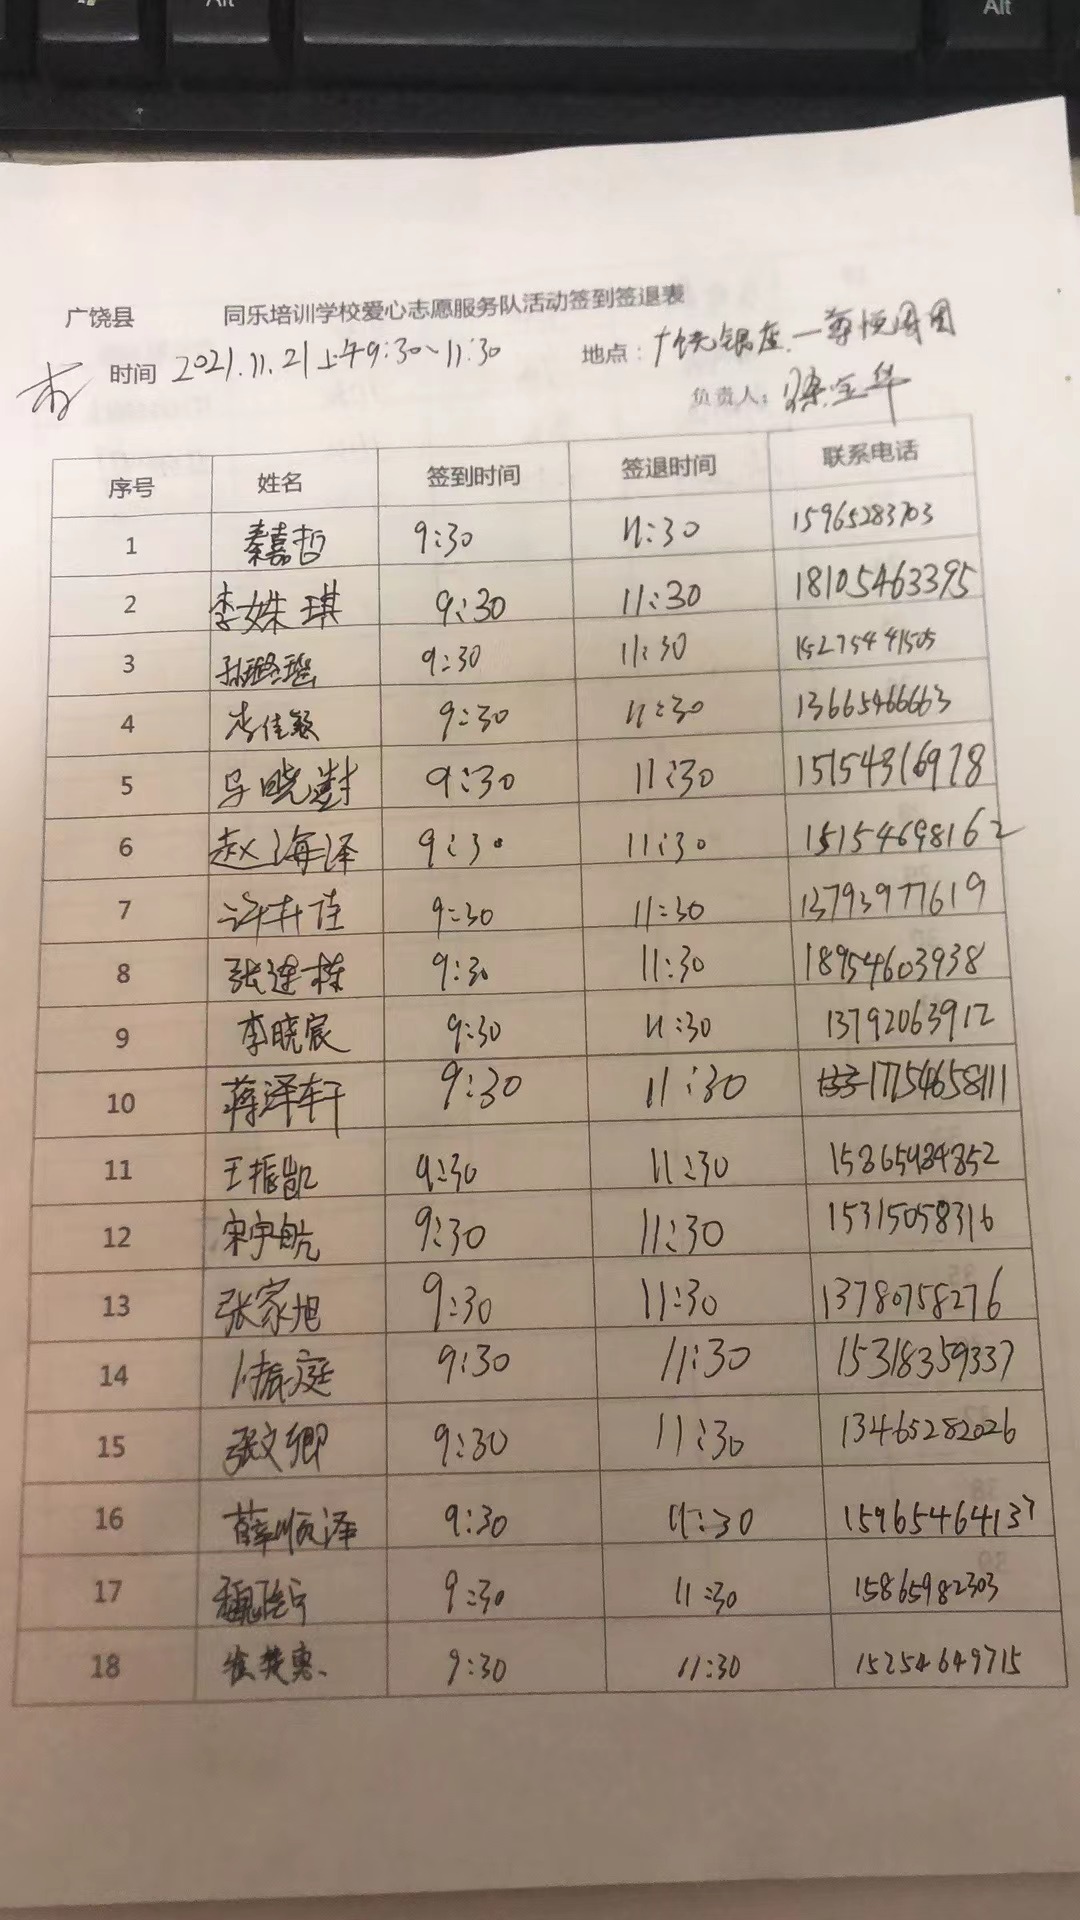 Alt
Alt
广饶县 同乐培训学校爱心志愿服务队活动签到签退表
时间 2021.11.21上午9:30~11:30 地点：广饶银座一尊悦周围
负责人：金华
序号 姓名 签到时间 签退时间 联系电话
1 秦嘉哲 9:30 11:30 15965283703
2 李姝琪 9:30 11:30 18105463395
3 孙璐瑶 9:30 11:30 15275441505
4 李佳颖 9:30 11:30 13665466663
5 马晓澍 9:30 11:30 15154316978
6 赵海泽 9:30 11:30 15154698162
7 许卉佳 9:30 11:30 13793977619
8 张建栋 9:30 11:30 18954603938
9 李晓宸 9:30 11:30 13792063912
10 蒋泽轩 9:30 11:30 17754658111
11 王振凯 9:30 11:30 15865984852
12 宋宇航 9:30 11:30 15315058316
13 张家旭 9:30 11:30 13780758276
14 付振庭 9:30 11:30 15318359337
15 张文卿 9:30 11:30 13465282026
16 薛顺泽 9:30 11:30 15965464137
17 9:30 11:30 15865982303
18 崔梦惠 9:30 11:30 15254649715